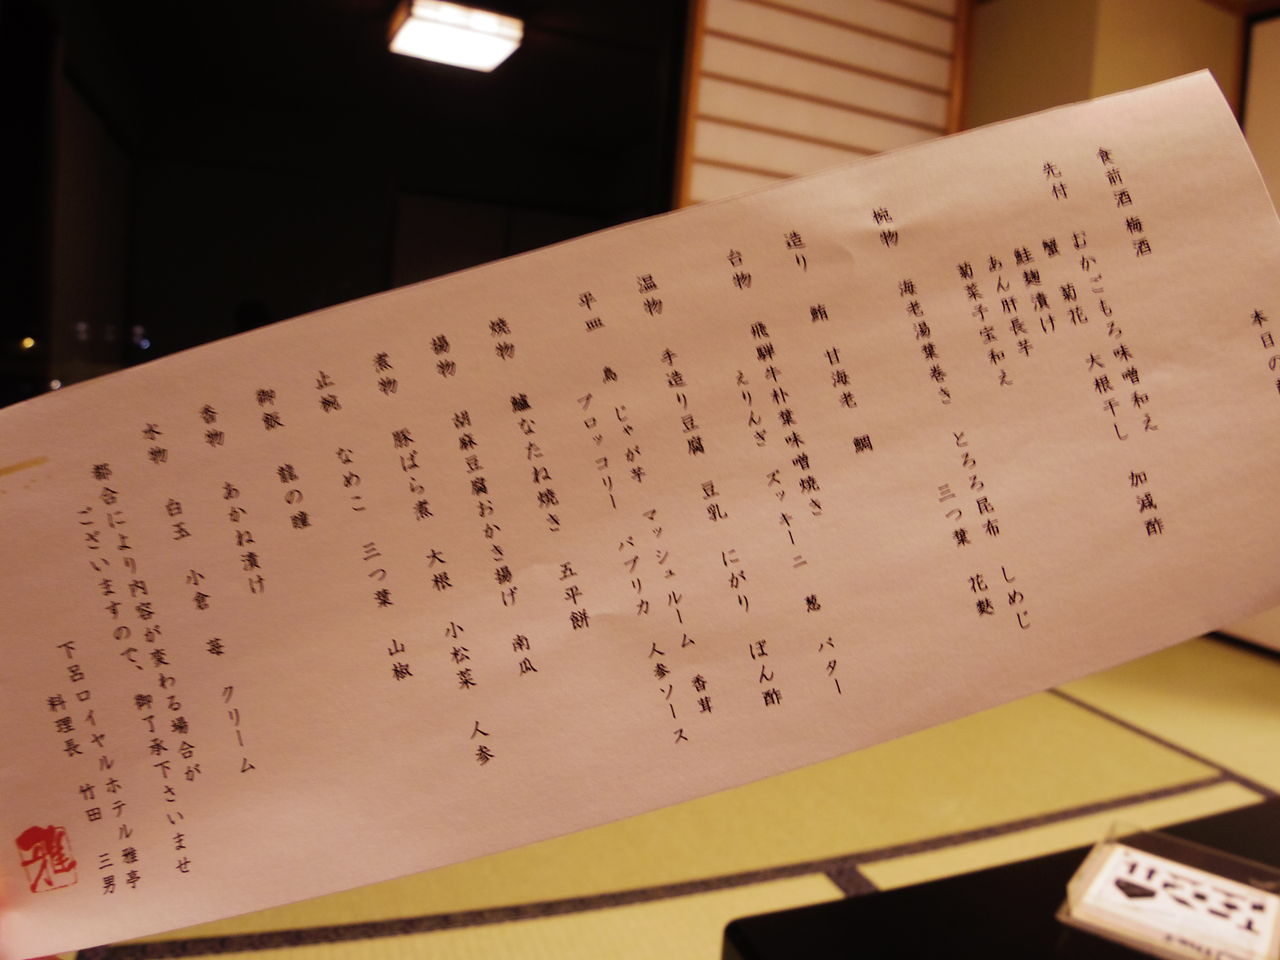 本日の
食前酒 梅酒
先付 おかごもろ味噌和え 大根干し 加減酢
蟹 菊花
鮭麹漬け
あん肝長芋
菊菜子宝和え
椀物 海老湯葉巻き とろろ昆布 しめじ
三つ葉 花麩
造り 鮪 甘海老 鯛
台物 飛騨牛朴葉味噌焼き ズッキーニ 葱 バター
えりんぎ
温物 手造り豆腐 豆乳 にがり ぽん酢
平皿 鳥 じゃが芋 マッシュルーム 香茸
ブロッコリー パプリカ 人参ソース
焼物 鱸なたね焼き 五平餅
揚物 胡麻豆腐おかき揚げ 南瓜
煮物 豚ばら煮 大根 小松菜 人参
止椀 なめこ 三つ葉 山椒
御飯 龍の瞳
香物 あかね漬け
水物 白玉 小倉 苺 クリーム
都合により内容が変わる場合が
ございますので、御了承下さいませ
下呂ロイヤルホテル雅亭
料理長 竹田 三男
雅